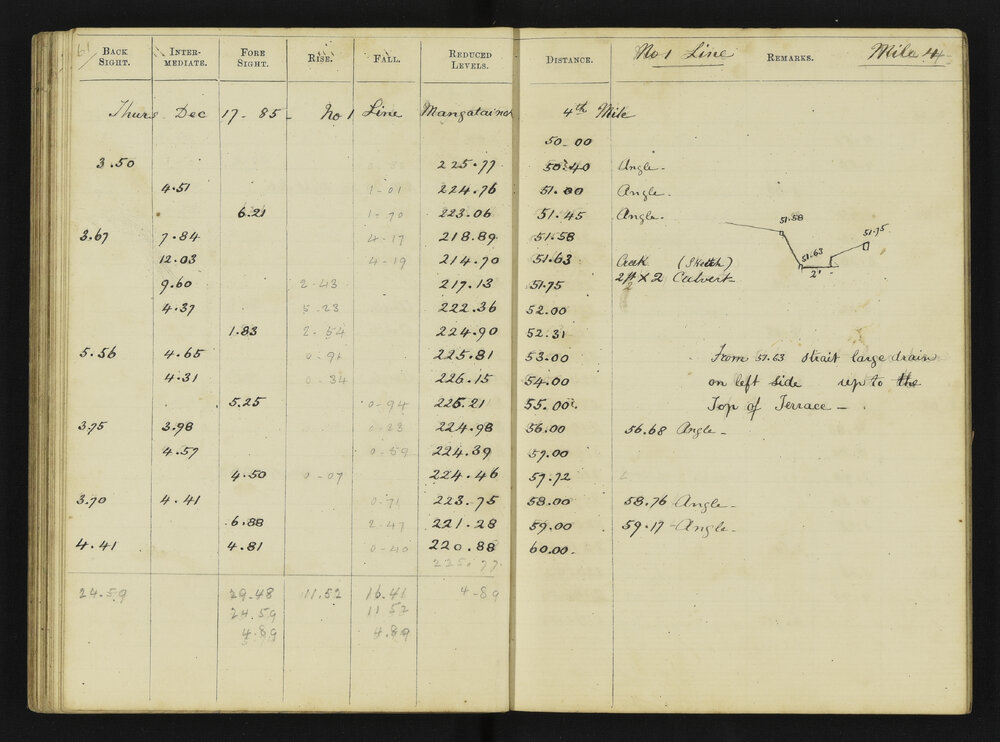 61 BACK SIGHT. INTER-MEDIATE. FORE SIGHT. RISE. FALL. REDUCED LEVELS. DISTANCE. No 1 Line REMARKS. Mile 4
Thurs Dec 17-85- No 1 Line Mangatainok 4th Mile
50-00
3.50 225.77 50.40 Angle-
4.51 1-01 224.76 51.00 Angle-
6.21 1-70 223.06 51.45 Angle-
3.67 7.84 4-17 218.89 51.58
12.03 4-19 214.70 51.63 Creek (Sketch)
2ft x 2 Culvert
9.60 2-43 217.13 51.75
4.37 5-23 222.36 52.00
1.83 2-54 224.90 52.31
5.56 4.65 0-91 225.81 53.00 From 51.63 strait large drain
4.31 0-34 226.15 54.00 on left side up to the
5.25 0-94 225.21 55.00 Top of Terrace -
3.75 3.98 0-23 224.98 56.00 56.68 Angle-
4.57 0-59 224.39 57.00
4.50 0-07 224.46 57.72
3.70 4.41 0-71 223.75 58.00 58.76 Angle-
6.88 2-47 221.28 59.00 59.17 Angle-
4.41 4.81 0-40 220.88 60.00-
225.77
24-59 29-48 11.52 16.41 4-89
24.59 11 52
4.89 4.89
51.58
51.75
51.63
2'